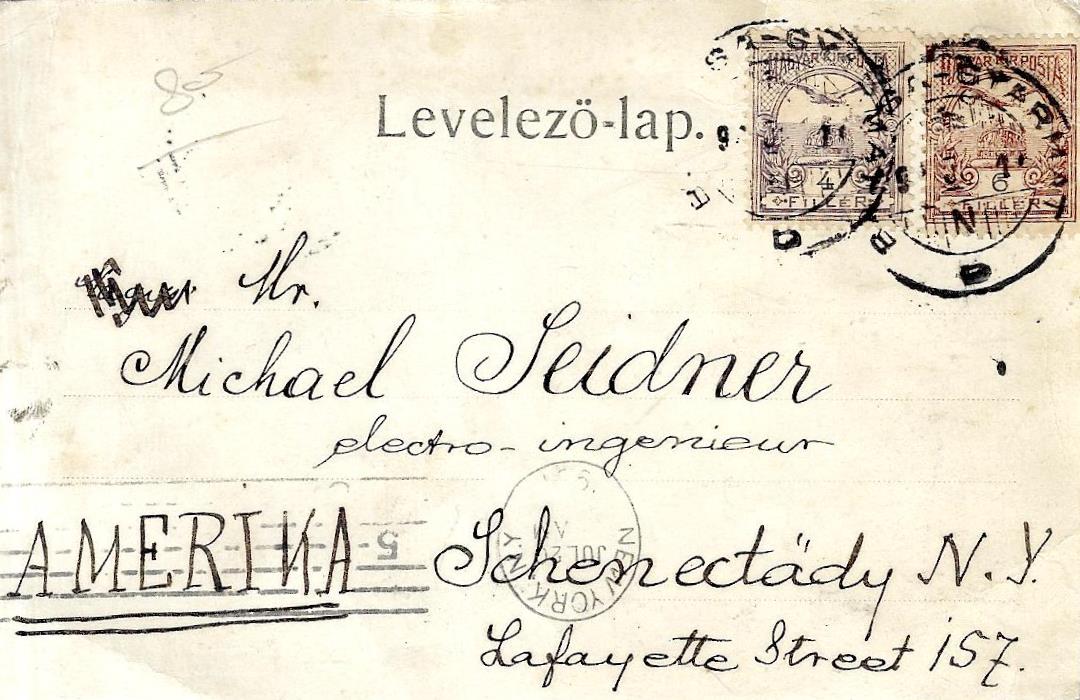 80
Levelező-lap.
MAGYAR KIR. POSTA
4
FILLÉR
MAGYAR KIR. POSTA
6
FILLÉR
Mr.
Michael Seidner
electro-ingenieur
AMERIKA
5
NEW YORK, N.Y.
JUL 2
Schenectädy N.Y.
Lafayette Street 157.